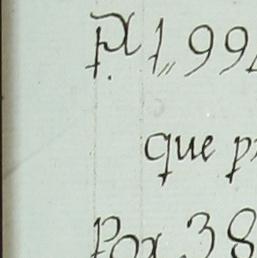 px 1,,99
que p
Pox 38